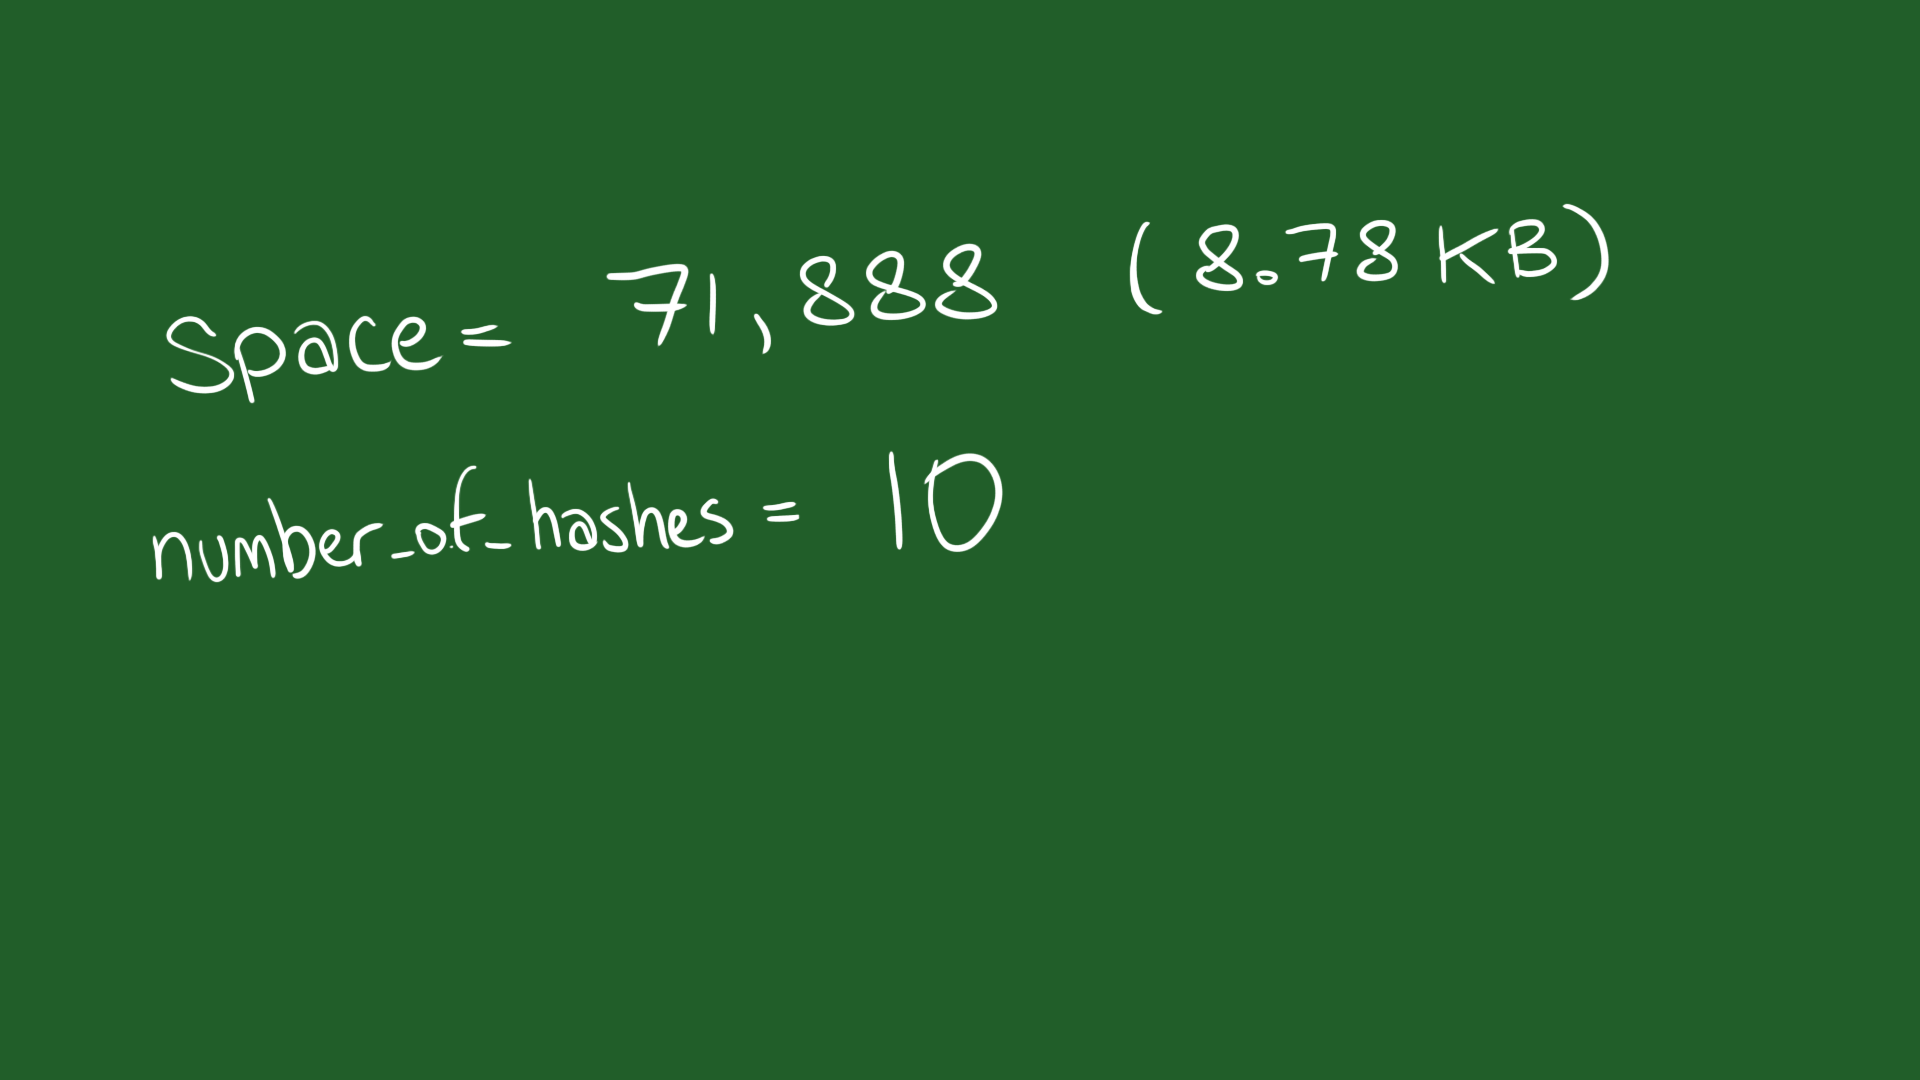 Space = 71,888 (8.78 KB)
number_of_hashes = 10